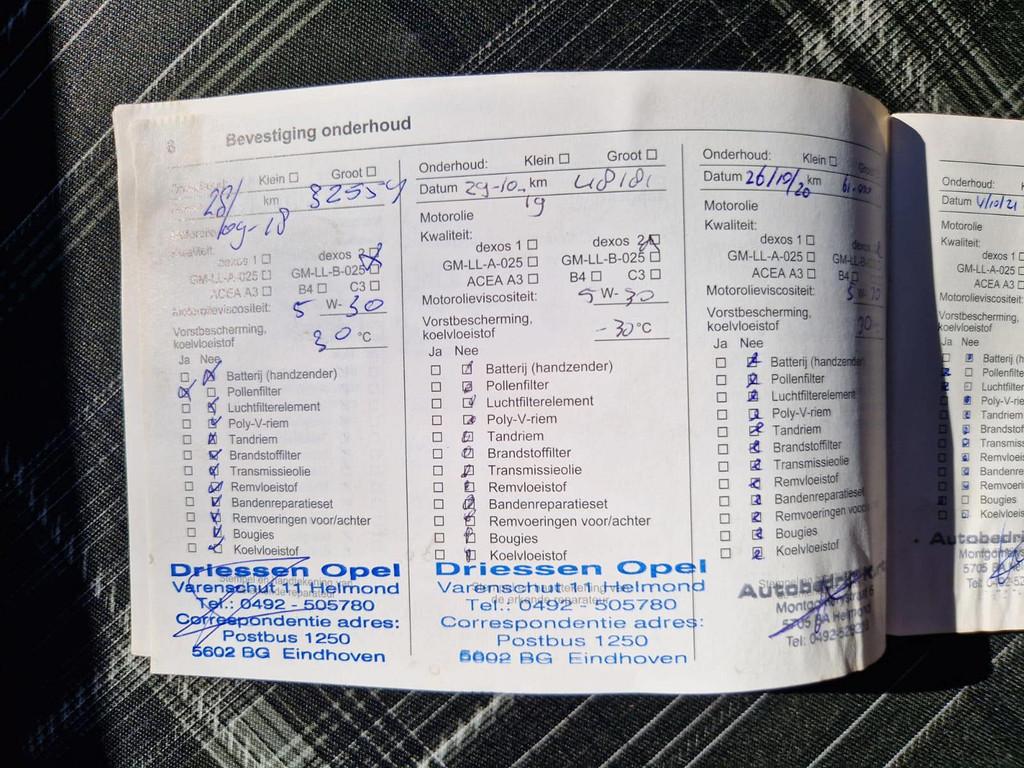 8 Bevestiging onderhoud
Klein ☐ Groot ☐
28/ km 32554
09-18
Kwaliteit:
dexos 1 ☐ dexos 2 ☒
GM-LL-A-025 ☐ GM-LL-B-025 ☐
ACEA A3 ☐ B4 ☐ C3 ☐
Motorolieviscositeit: 5 W- 30
Vorstbescherming,
koelvloeistof 30 °C
Ja Nee
☐ ☒ Batterij (handzender)
☒ ☐ Pollenfilter
☐ ☒ Luchtfilterelement
☐ ☒ Poly-V-riem
☐ ☒ Tandriem
☐ ☒ Brandstoffilter
☐ ☒ Transmissieolie
☐ ☒ Remvloeistof
☐ ☒ Bandenreparatieset
☐ ☒ Remvoeringen voor/achter
☐ ☒ Bougies
☐ ☒ Koelvloeistof
Stempel en handtekening van
Driessen Opel
Varenschut 11 Helmond
Tel.: 0492 - 505780
Correspondentie adres:
Postbus 1250
5602 BG Eindhoven
Onderhoud: Klein ☐ Groot ☐
Datum 29-10- km 48181
19
Motorolie
Kwaliteit:
dexos 1 ☐ dexos 2 ☒
GM-LL-A-025 ☐ GM-LL-B-025 ☐
ACEA A3 ☐ B4 ☐ C3 ☐
Motorolieviscositeit: 5 W- 30
Vorstbescherming,
koelvloeistof -30 °C
Ja Nee
☐ ☒ Batterij (handzender)
☐ ☒ Pollenfilter
☐ ☒ Luchtfilterelement
☐ ☒ Poly-V-riem
☐ ☒ Tandriem
☐ ☒ Brandstoffilter
☐ ☒ Transmissieolie
☐ ☒ Remvloeistof
☐ ☒ Bandenreparatieset
☐ ☒ Remvoeringen voor/achter
☐ ☒ Bougies
☐ ☒ Koelvloeistof
Driessen Opel
Varenschut 11 Helmond
de erkende reparateur
Tel.: 0492 - 505780
Correspondentie adres:
Postbus 1250
5602 BG Eindhoven
Onderhoud: Klein ☐ Groot ☐
Datum 26/10/20 km
Motorolie
Kwaliteit:
dexos 1 ☐ dexos
GM-LL-A-025 ☐ GM-LL-B-025
ACEA A3 ☐ B4 ☐
Motorolieviscositeit: 5 W- 30
Vorstbescherming,
koelvloeistof 30 °C
Ja Nee
☐ ☒ Batterij (handzender)
☐ ☒ Pollenfilter
☐ ☒ Luchtfilterelement
☐ ☒ Poly-V-riem
☐ ☒ Tandriem
☐ ☒ Brandstoffilter
☐ ☒ Transmissieolie
☐ ☒ Remvloeistof
☐ ☒ Bandenreparatieset
☐ ☒ Remvoeringen
☐ ☒ Bougies
☐ ☒ Koelvloeistof
5705 BA Helmond
Onderhoud:
Datum 4/10/21
Motorolie
Kwaliteit:
dexos 1 ☐
GM-LL-A-025 ☐
ACEA A3 ☐
Motorolieviscositeit:
Vorstbescherming,
koelvloeistof
Ja Nee
Batterij
Pollenfilter
Poly-V-
Tandriem
Bougies
5705 BA